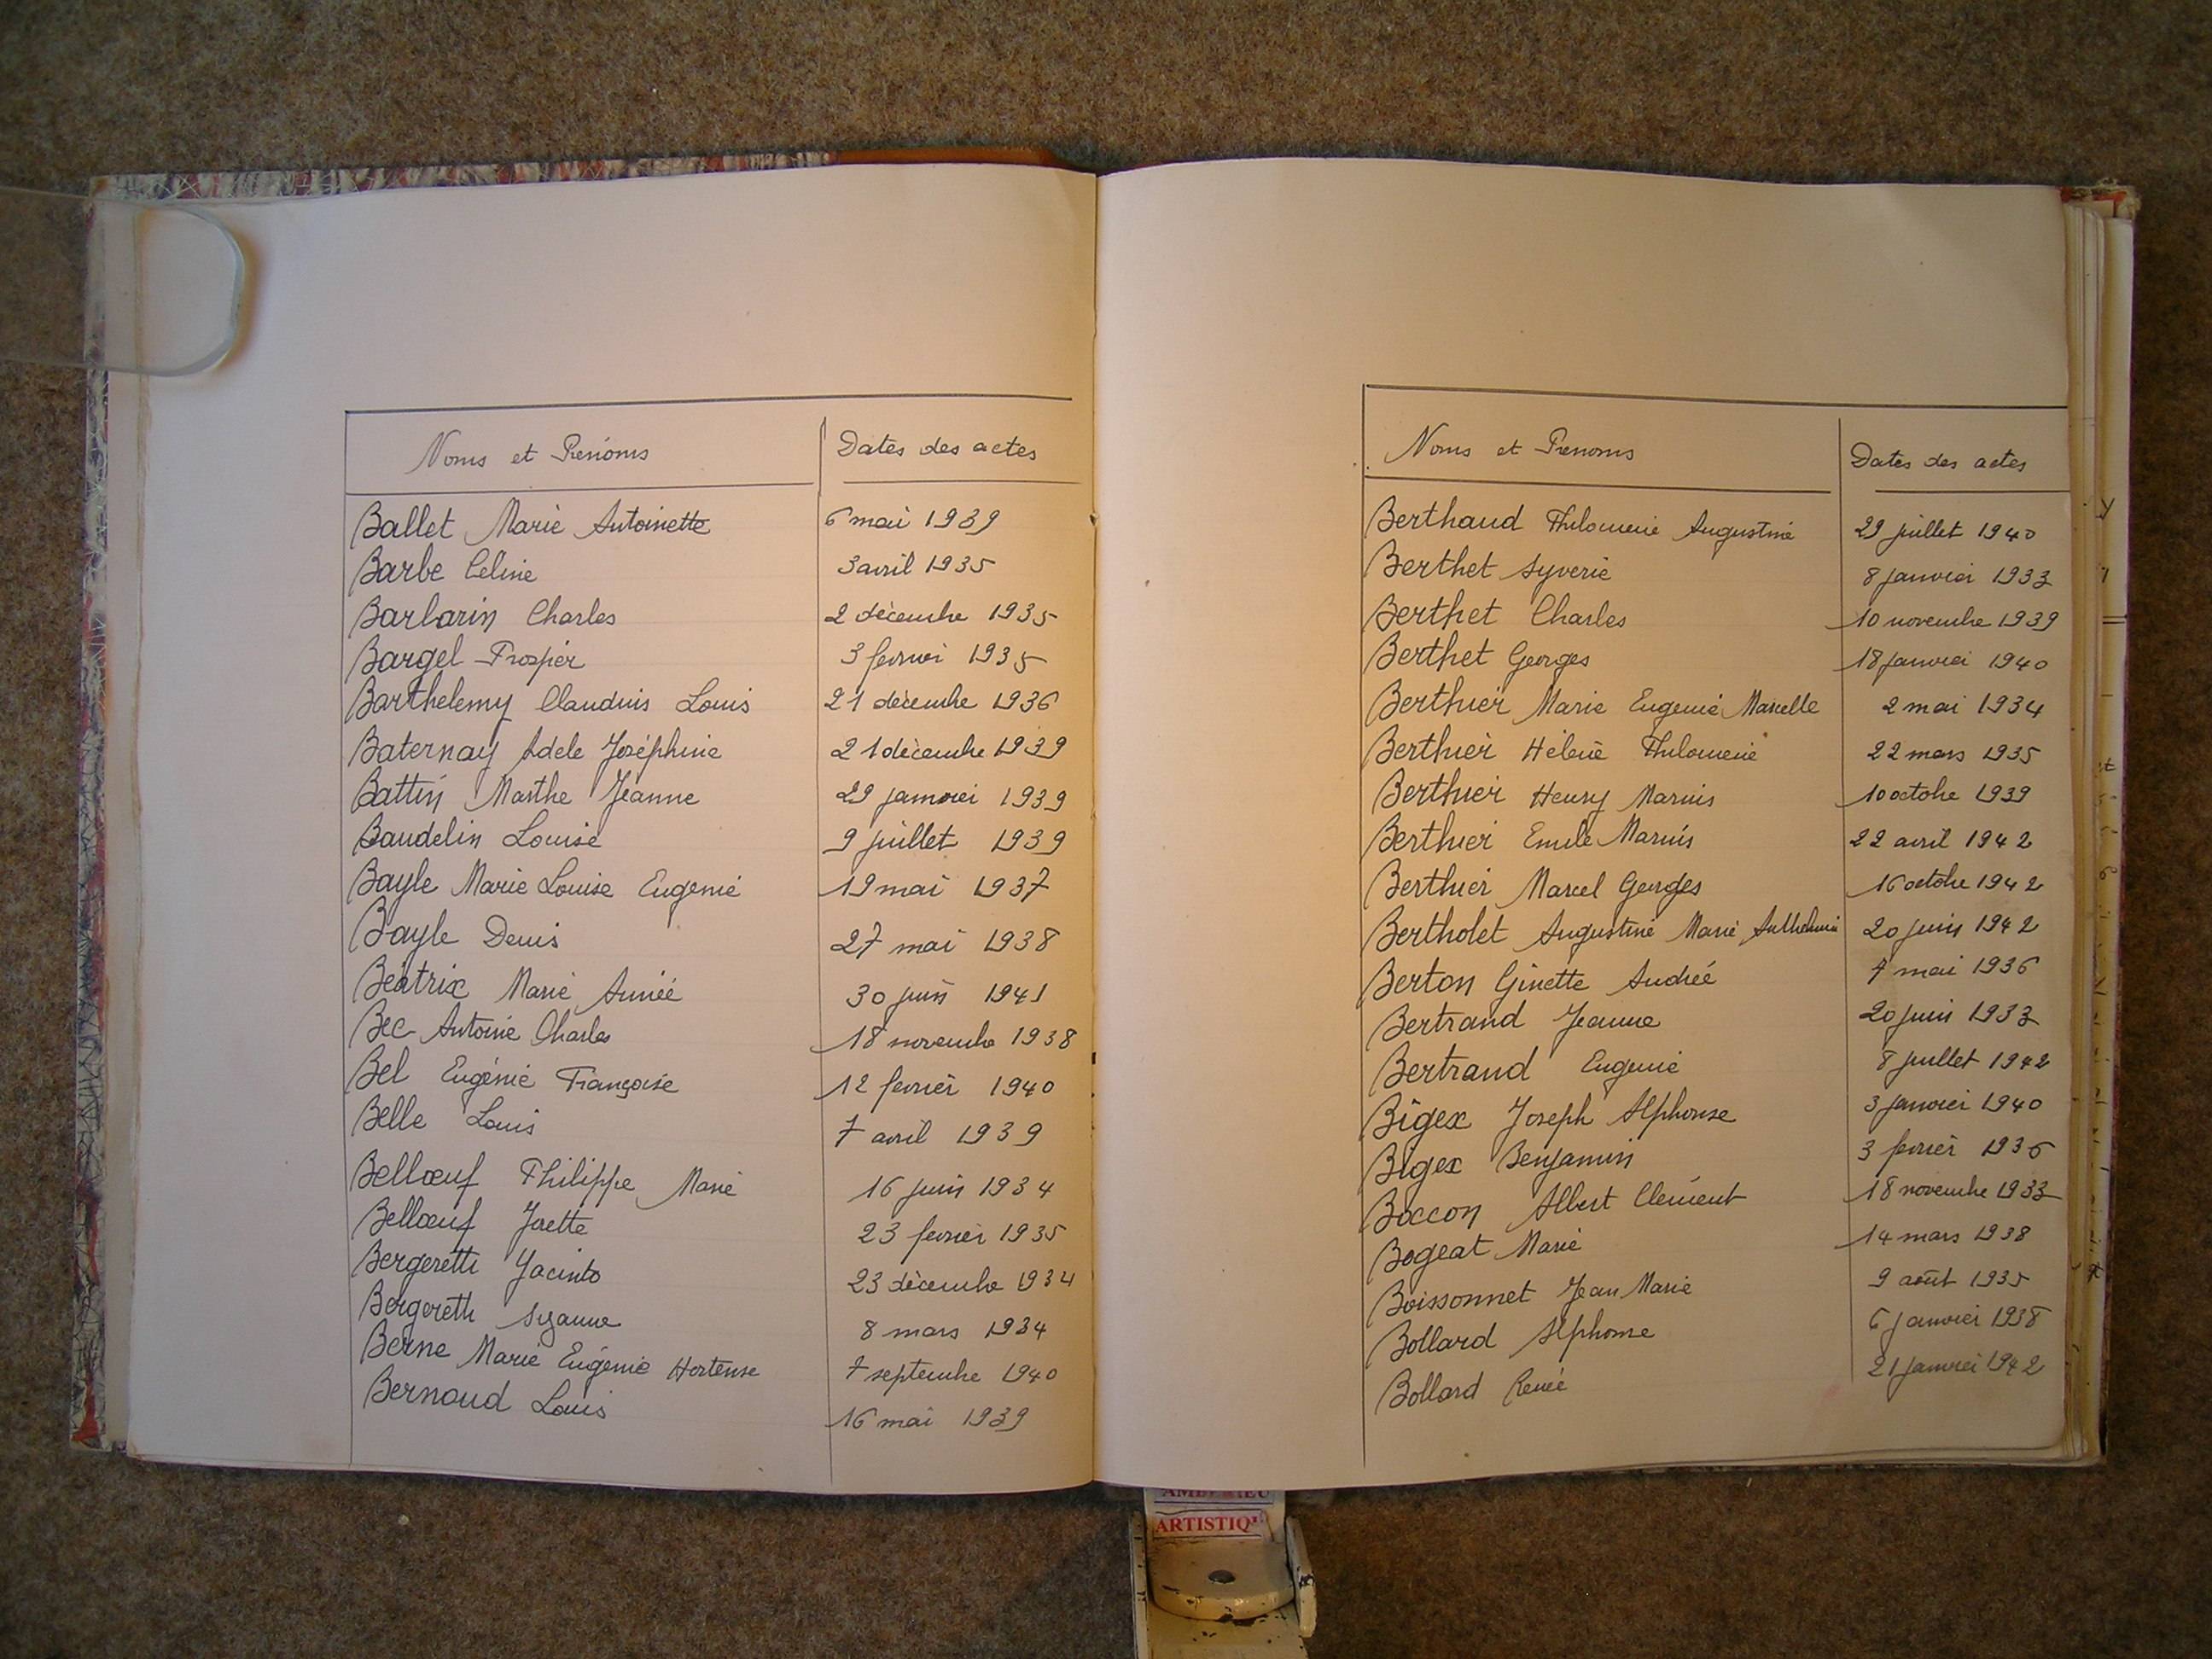 Noms et Prénoms Dates des actes
Ballet Marie Antoinette 6 mai 1939
Barbe Céline 3 avril 1935
Barbarin Charles 2 décembre 1935
Bargel Prosper 3 fevrier 1935
Barthelemy Claudius Louis 21 décembre 1936
Baternay Adele Joséphine 21 décembre 1939
Battin Marthe Jeanne 29 janvier 1939
Baudelin Louise 9 juillet 1939
Bayle Marie Louise Eugenie 19 mai 1937
Bayle Denis 27 mai 1938
Béatrix Marie Aimée 30 juin 1941
Bec Antoine Charles 18 novembre 1938
Bel Eugénie Françoise 12 fevrier 1940
Belle Louis 7 avril 1939
Bellœuf Philippe Marie 16 juin 1934
Bellœuf Yvette 23 fevrier 1935
Bergeretti Jacinto 23 décembre 1934
Bergeretti Suzanne 8 mars 1934
Berne Marie Eugénie Hortense 7 septembre 1940
Bernaud Louis 16 mai 1939
Noms et Prenoms Dates des actes
Berthaud Philomenie Augustine 29 juillet 1940
Berthet Syverie 8 janvier 1933
Berthet Charles 10 novembre 1939
Berthet Georges 18 janvier 1940
Berthier Marie Eugenie Marcelle 2 mai 1934
Berthier Héléne Philomenie 22 mars 1935
Berthier Henry Marius 10 octobre 1939
Berthier Emile Marius 22 avril 1942
Berthier Marcel Georges 16 octobre 1942
Bertholet Augustine Marie Anthelmie 20 juin 1942
Berton Ginette Andrée 7 mai 1936
Bertrand Jeanne 20 juin 1933
Bertrand Eugenie 8 juillet 1942
Bigex Joseph Alphonse 3 janvier 1940
Bigex Benjamin 3 fevrier 1936
Boccon Albert Clement 18 novembre 1933
Bogeat Marie 14 mars 1938
Boissonnet Jean Marie 9 août 1935
Bollard Alphonse 6 janvier 1938
Bollard Renée 21 janvier 1942
ARTISTIQ